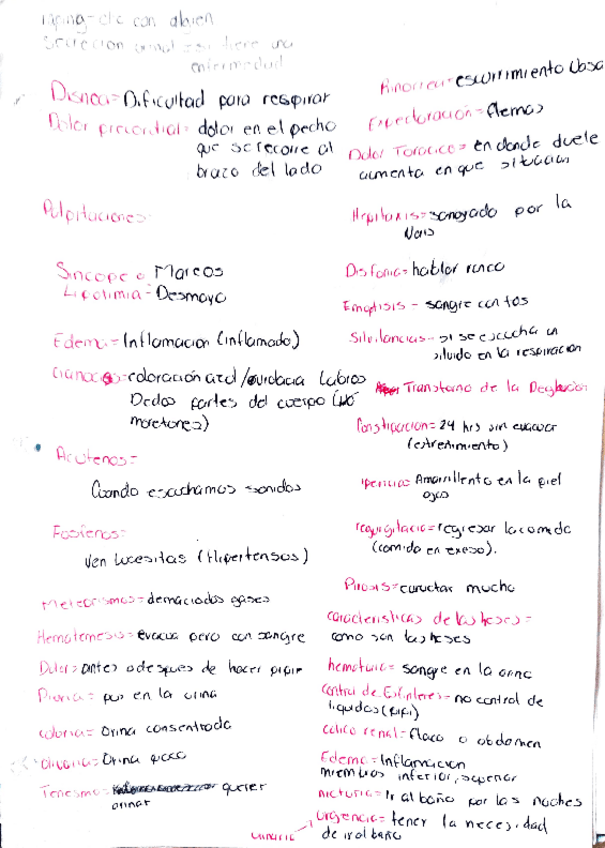 con alguien
Secrecion si tiene una
enfermedad
Disnea = Dificultad para respirar
Dolor precordial = dolor en el pecho
que se recorre al
brazo del lado
Palpitaciones-
Sincope o Mareos
Lipotimia = Desmayo
Edema = Inflamacion (inflamado)
coloración azul / Labios
Dedos partes del cuerpo (no
moretones)
Acufenos =
Cuando escuchamos sonidos
Fosfenos =
Ven lucesitas (Hipertensos)
Meteorismos = demaciados gases
Hematemesis = evacua pero con sangre
Dolor = antes o despues de hacer pipir
Piuria = pus en la orina
coluria = Orina consentrada
Orina poca
Tenesmo = querer
orinar
Rinorrea = escurrimiento
Expectoración = flemas
Dolor Toracico = en donde duele
aumenta en que situacion
sangrado por la
Nariz
Disfonia = hablar ronco
Emoptisis - sangre con tos
Sibilancias - si se escucha un
silvido en la respiracion
Transtorno de la Deglución
Constipacion = 24 hrs sin evacuar
(estreñimiento)
Amarillento en la piel
ojos
regresar la comida
(comida en exeso).
Pirosis = eructar mucho
caracteristicas de las heses =
como son las heses
hematuria = sangre en la orina
control de Esfinteres = no control de
liquidos (pipi)
colico renal = flaco o abdomen
Edema = Inflamacion
miembros inferior, superior
nicturia = Ir al baño por las noches
Urgencia = tener la necesidad
de ir al baño